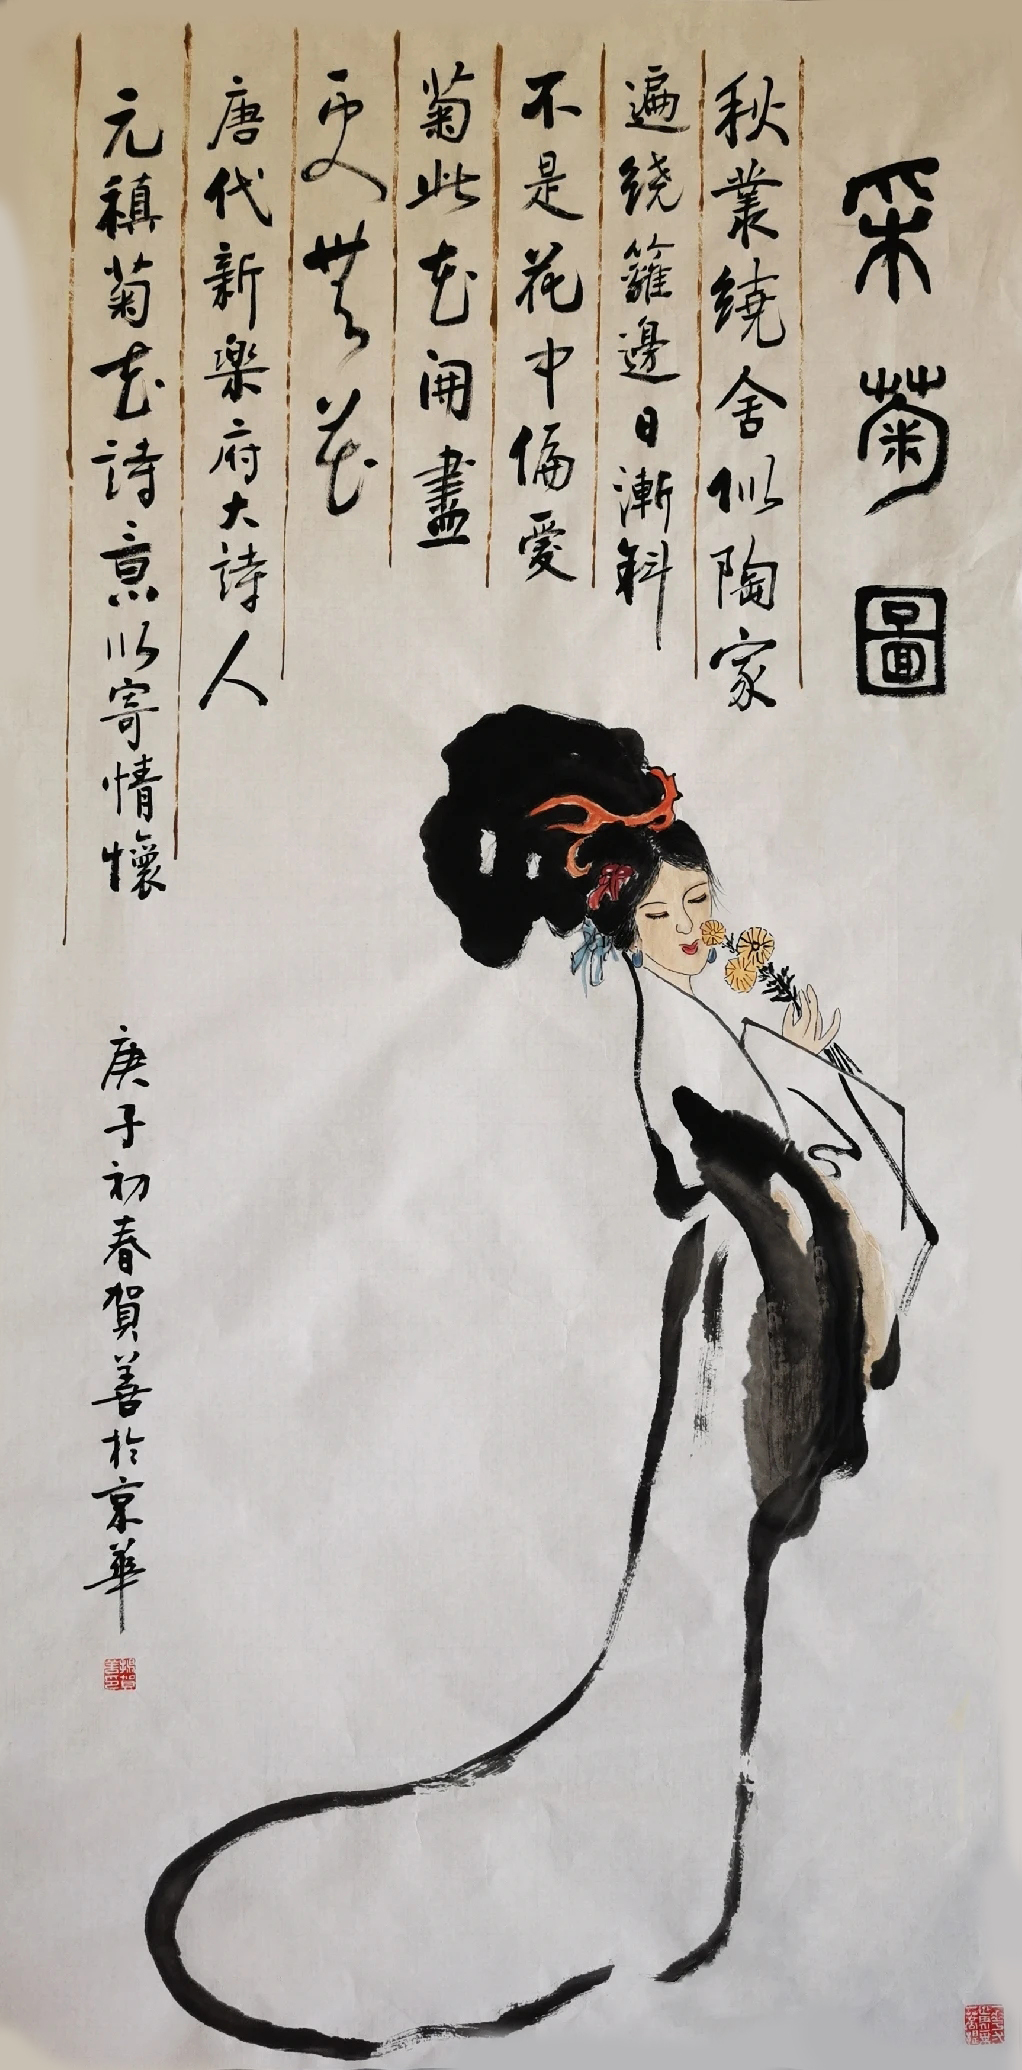 采菊圖
秋叢繞舍似陶家
遍绕籬邊日漸斜
不是花中偏愛
菊此花開盡
更無花
唐代新樂府大詩人
元禛菊花詩意以寄情懷
庚子初春賀善於京華